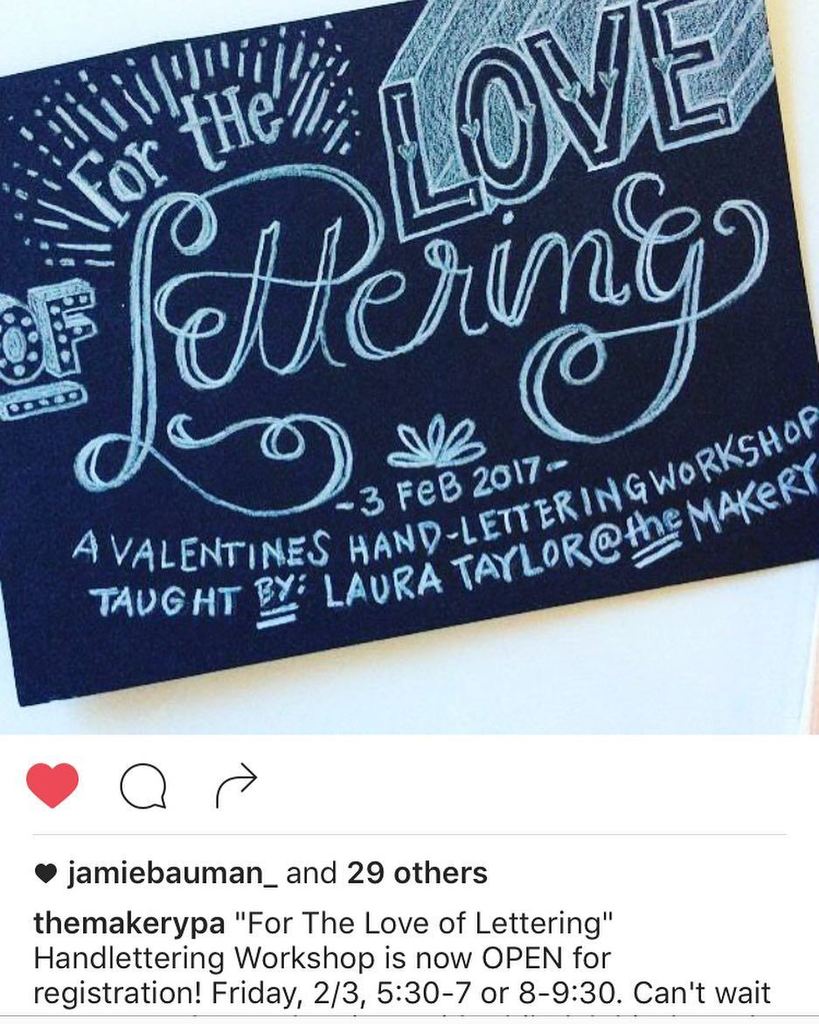 For the
LOVE
OF Lettering
-3 FEB 2017-
A VALENTINES HAND-LETTERING WORKSHOP
TAUGHT BY: LAURA TAYLOR@the MAKERY
jamiebauman_ and 29 others
themakerypa "For The Love of Lettering"
Handlettering Workshop is now OPEN for
registration! Friday, 2/3, 5:30-7 or 8-9:30. Can't wait